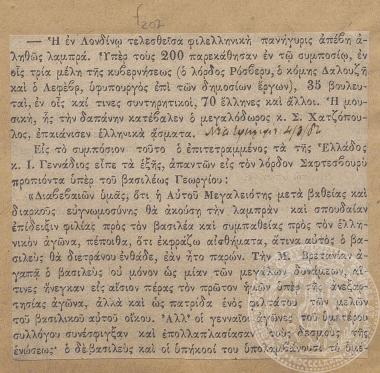 f207
— Ἡ ἐν Λονδίνῳ τελεσθεῖσα φιλελληνικὴ πανήγυρις ἀπέβη ἀ-
ληθῶς λαμπρά. Ὑπὲρ τοὺς 200 παρεκάθησαν ἐν τῷ συμποσίῳ, ἐν
οἷς τρία μέλη τῆς κυβερνήσεως (ὁ λόρδος Ῥόσβερυ, ὁ κόμης Δαλουζῆ
καὶ ὁ Λεφέβρ, ὑφυπουργὸς ἐπὶ τῶν δημοσίων ἔργων), 35 βουλευ-
ταί, ἐν οἷς καί τινες συντηρητικοί, 70 ἕλληνες καὶ ἄλλοι. Ἡ μουσι-
κή, ἧς τὴν δαπάνην κατέβαλεν ὁ μεγαλόδωρος κ. Σ. Χατζόπου-
λος, ἐπαιάνισεν ἑλληνικὰ ᾄσματα.
Εἰς τὸ συμπόσιον τοῦτο ὁ ἐπιτετραμμένος τὰ τῆς Ἑλλάδος
κ. Ι. Γεννάδιος εἶπε τὰ ἑξῆς, ἀπαντῶν εἰς τὸν λόρδον Σαφτεσβουρὺ
προπιόντα ὑπὲρ τοῦ βασιλέως Γεωργίου:
«Διαβεβαιῶν ὑμᾶς, ὅτι ἡ Αὐτοῦ Μεγαλειότης μετὰ βαθείας καὶ
διαρκοῦς εὐγνωμοσύνης θὰ ἀκούσῃ τὴν λαμπρὰν καὶ σπουδαίαν
ἐπίδειξιν φιλίας πρὸς τὸν βασιλέα καὶ συμπαθείας πρὸς τὸν ἑλλη-
νικὸν ἀγῶνα, πέποιθα, ὅτι ἐκφράζω αἰσθήματα, ἅτινα αὐτὸς ὁ βα-
σιλεὺς θὰ διετράνου ἐνθάδε, ἐὰν ἦτο παρών. Τὴν Μ. Βρετανίαν
ἀγαπᾷ ὁ βασιλεὺς οὐ μόνον ὡς μίαν τῶν μεγάλων δυνάμεων, αἵ-
τινες ἤνεγκαν εἰς αἴσιον πέρας τὸν πρῶτον ἡμῶν ὑπὲρ τῆς ἀνεξαρ-
τησίας ἀγῶνα, ἀλλὰ καὶ ὡς πατρίδα ἑνὸς φιλτάτου τῶν μελῶν
τοῦ βασιλικοῦ αὐτοῦ οἴκου. Ἀλλ' οἱ γενναῖοι ἀγῶνες τοῦ ὑμετέρου
συλλόγου συνέσφιγξαν καὶ ἐπολλαπλασίασαν τοὺς δεσμοὺς τῆς
ἑνώσεως· ὁ δὲ βασιλεὺς καὶ οἱ ὑπήκοοί του ὑπολαμβάνουσι τὸ ὑμέ-